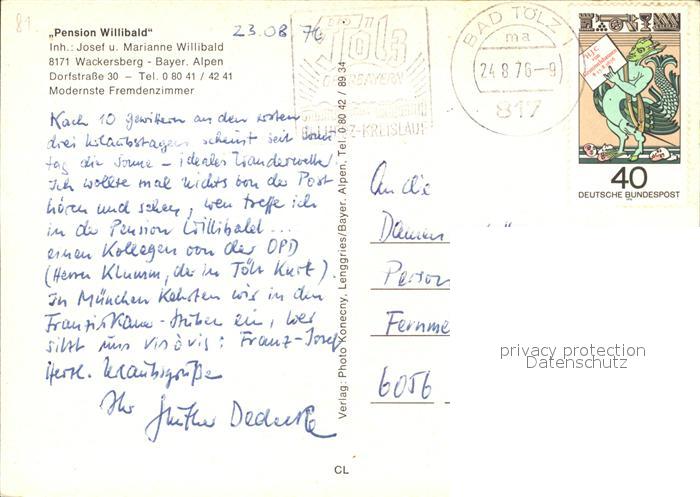 81
„Pension Willibald“
Inh.: Josef u. Marianne Willibald
8171 Wackersberg - Bayer. Alpen
Dorfstraße 30 – Tel. 0 80 41 / 42 41
Modernste Fremdenzimmer
23.08 76
BAD TÖLZ 1
ma
24.8.76-9
817
40
DEUTSCHE BUNDESPOST
Nach 10 Gewittern an den ersten
drei Urlaubstagen scheint seit Sonn
tag die Sonne – ideales Wanderwetter.
Ich wollte mal nichts von der Post
hören und sehen, wen treffe ich
in der Pension Willibald ...
einen Kollegen von der OPD
(Herrn Klumm, der in Tölz Kurt).
In München kehrten wir in den
Franziskaner-Stuben ein, wer
sitzt uns visàvis: Franz-Josef
Herzl. Urlaubsgrüße
Ihr Günther
An die
Damen
Person
Fernme
6056
Verlag: Photo Konecny, Lenggries/Bayer. Alpen, Tel. 0 80 42 / 89 34
CL
privacy protection
Datenschutz